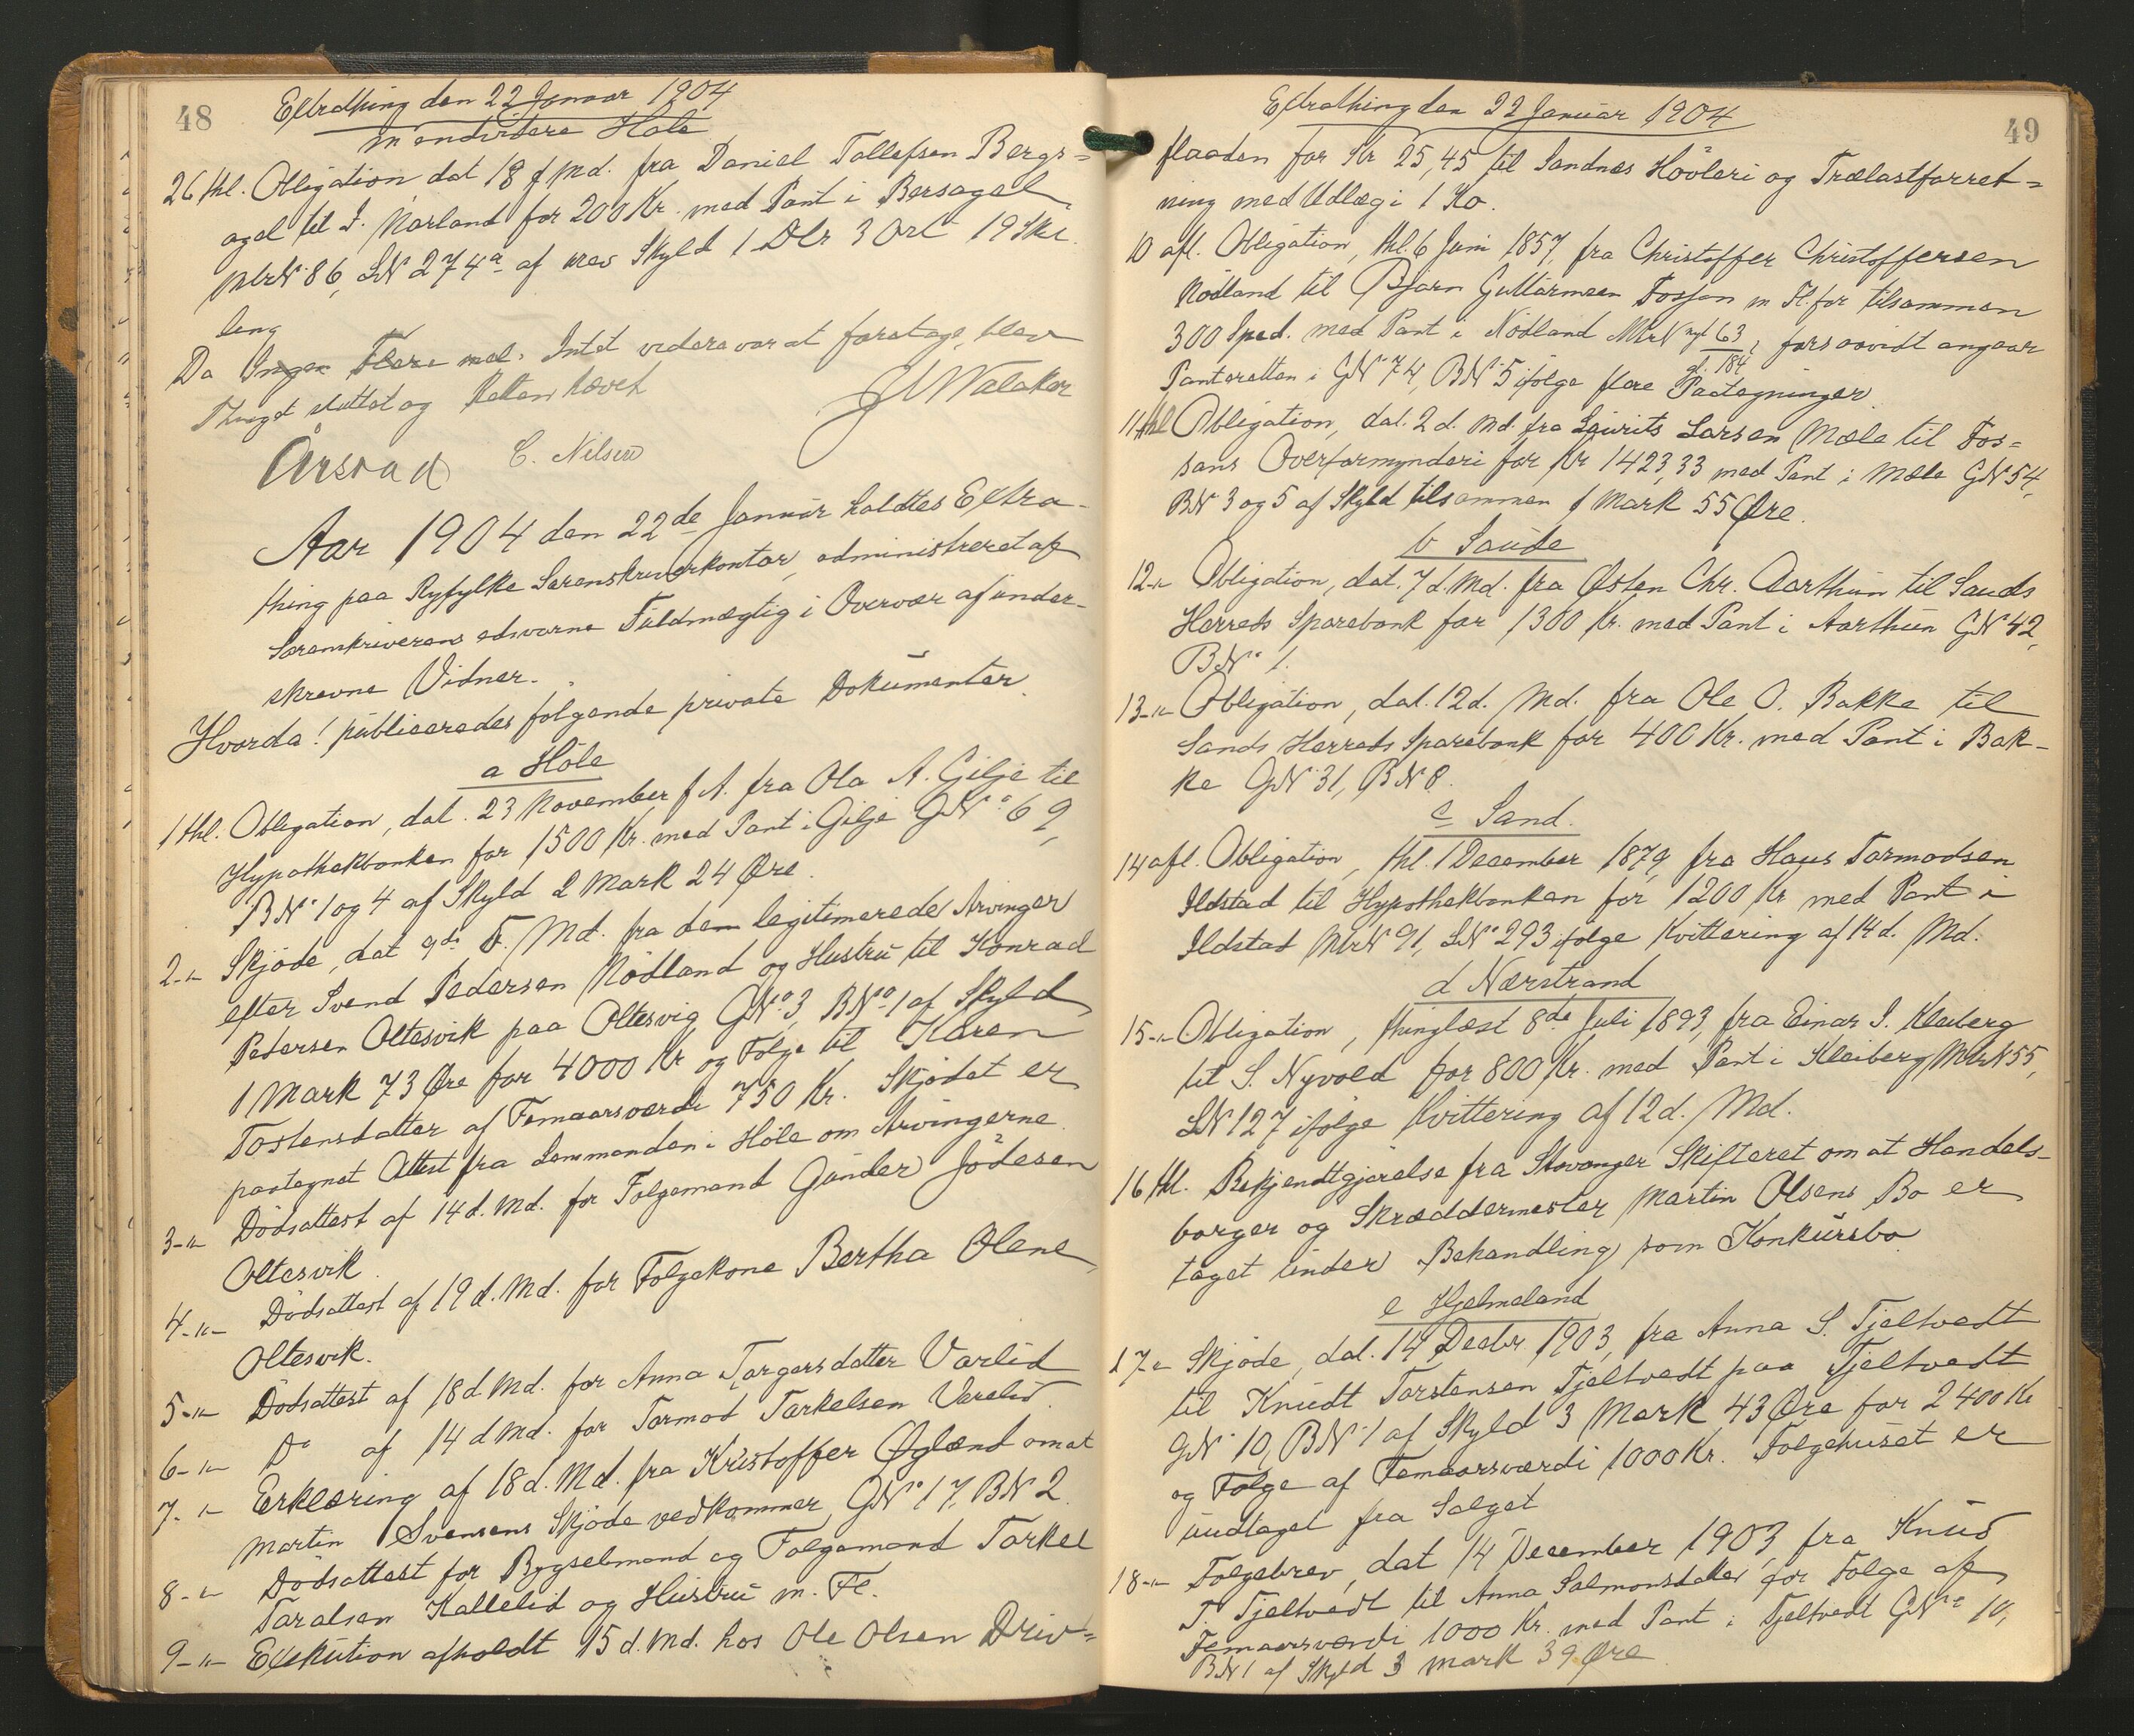 48
Extrathing den 22 Januar 1904
m endvidere Höle
26 thl. Obligation dat 18 f Md. fra Daniel Tollefsen Bergs=
agel til I. Norland for 200 Kr. med Pant i Bersagel
MtrN 86, LN 274a af rev Skyld 1 Dlr 3 Ort 19 Skil
ling
Da Ingen Flere mel. Intet videre var at foretage, blev
Thinget sluttet og Retten hævet
J W Walaker
Årsvad C. Nilsen
Aar 1904 den 22de Januar holdtes Extra-
thing paa Ryfylke Sorenskriverkontor, administreret af
Sorenskriverens edsvorne Fuldmægtig i Overvær af under-
skrevne Vidner.
Hvorda! publiceredes følgende private Dokumenter
a Höle
1 thl. Obligation, dat. 23 November f A. fra Ola A. Gilje til
Hypothekbanken for 1500 Kr. med Pant i Gilje GN° 69,
BN° 1 og 4 af Skyld 2 Mark 24 Øre.
2-"- Skjöde, dat 9de d. Md. fra dem legitimerede Arvinger
efter Svend Pedersen Nödland og Hustru til Konrad
Pedersen Oltesvik paa Oltesvig GN° 3, BN° 1 af Skyld
1 Mark 73 Øre for 4000 Kr og Folge til Karen
Tostensdatter af Femaarsværdi 750 Kr. Skjödet er
paategnet Attest fra Lensmanden i Höle om Arvingerne.
3-"- Dödsattest af 14 d. Md. for Folgemand Gunder Jödesen
Oltesvik.
4-"- Dödsattest af 19 d. Md. for Folgekone Bertha Olene
Oltesvik.
5-"- Dödsattest af 18 d Md. for Anna Torgersdatter Varlid
6-"- D° af 14 d Md. for Tormod Torkelsen Varelid.
7-"- Erklæring af 18 d. Md. fra Kristoffer Øglænd om at
Martin Svensens Skjöde vedkommer GN° 17, BN 2.
8-"- Dödsattest for Bygselmand og Folgemand Torkel
Taralsen Kallelid og Hustru m. Fl.
9-"- Exekution afholdt 15 d. Md. hos Ole Olsen Driv=
49
Extrathing den 22 Januar 1904
flaaden for Kr 25,45 til Sandnes Hövleri og Trælastforret=
ning med Udlæg i 1 Ko.
10 afl. Obligation, thl. 6 Juni 1857, fra Christoffer Christoffersen
Nödland til Bjørn Guttormsen Fosson m Fl. for tilsammen
300 Spd. med Pant i Nödland MtrN nyt 63, forsaavidt angaar
gl. 184
Panteretten i GN° 74, BN° 5 ifølge flere Paategninger
11 thl Obligation, dat. 2 d. Md. fra Laurits Larsen Mæle til Fos=
sans Overformynderi for Kr 1423,33 med Pant i Mæle GN 54,
BN 3 og 5 af Skyld tilsammen 1 Mark 55 Øre.
b Saude
12-"- Obligation, dat. 7 d. Md. fra Østen Chr. Aarthun til Sauds
Herreds Sparebank for 1300 Kr. med Pant i Aarthun GN° 42,
BN° 1.
13-"- Obligation, dat. 12 d. Md. fra Ole O. Bakke til
Sands Herreds Sparebank for 400 Kr. med Pant i Bak-
ke GN° 31, BN 8.
c Sand.
14 afl. Obligation, thl. 1 December 1879, fra Hans Tormodsen
Ildstad til Hypothekbanken for 1200 Kr med Pant i
Ildstad MtrN 91, LN° 293 ifølge Kvittering af 14 d. Md.
d Nærstrand
15-"- Obligation, thinglæst 8de Juli 1893, fra Einar I. Kleiberg
til S. Nyvold for 800 Kr. med Pant i Kleiberg MtrN 55,
LN 127 ifølge Kvittering af 12 d. Md.
16 thl. Bekjendtgjörelse fra Stavanger Skifteret om at Handels-
borger og Skræddermester Martin Olsens Bo er
taget under Behandling som Konkursbo
e Hjelmeland
17-"- Skjöde, dat. 14 Decbr 1903, fra Anna S. Tjeltvedt
til Knudt Torstensen Tjeltvedt paa Tjeltvedt
GN° 10, BN° 1 af Skyld 3 Mark 43 Øre for 2400 Kr
og Folge af Femaarsværdi 1000 Kr. Folgehuset er
undtaget fra Salget
18-"- Folgebrev, dat 14 December 1903 fra Knud
T. Tjeltvedt til Anna Salmonsdatter for Folge af
Femaarsværdi 1000 Kr. med Pant i Tjeltvedt GN° 10,
BN 1 af Skyld 3 Mark 39 Øre